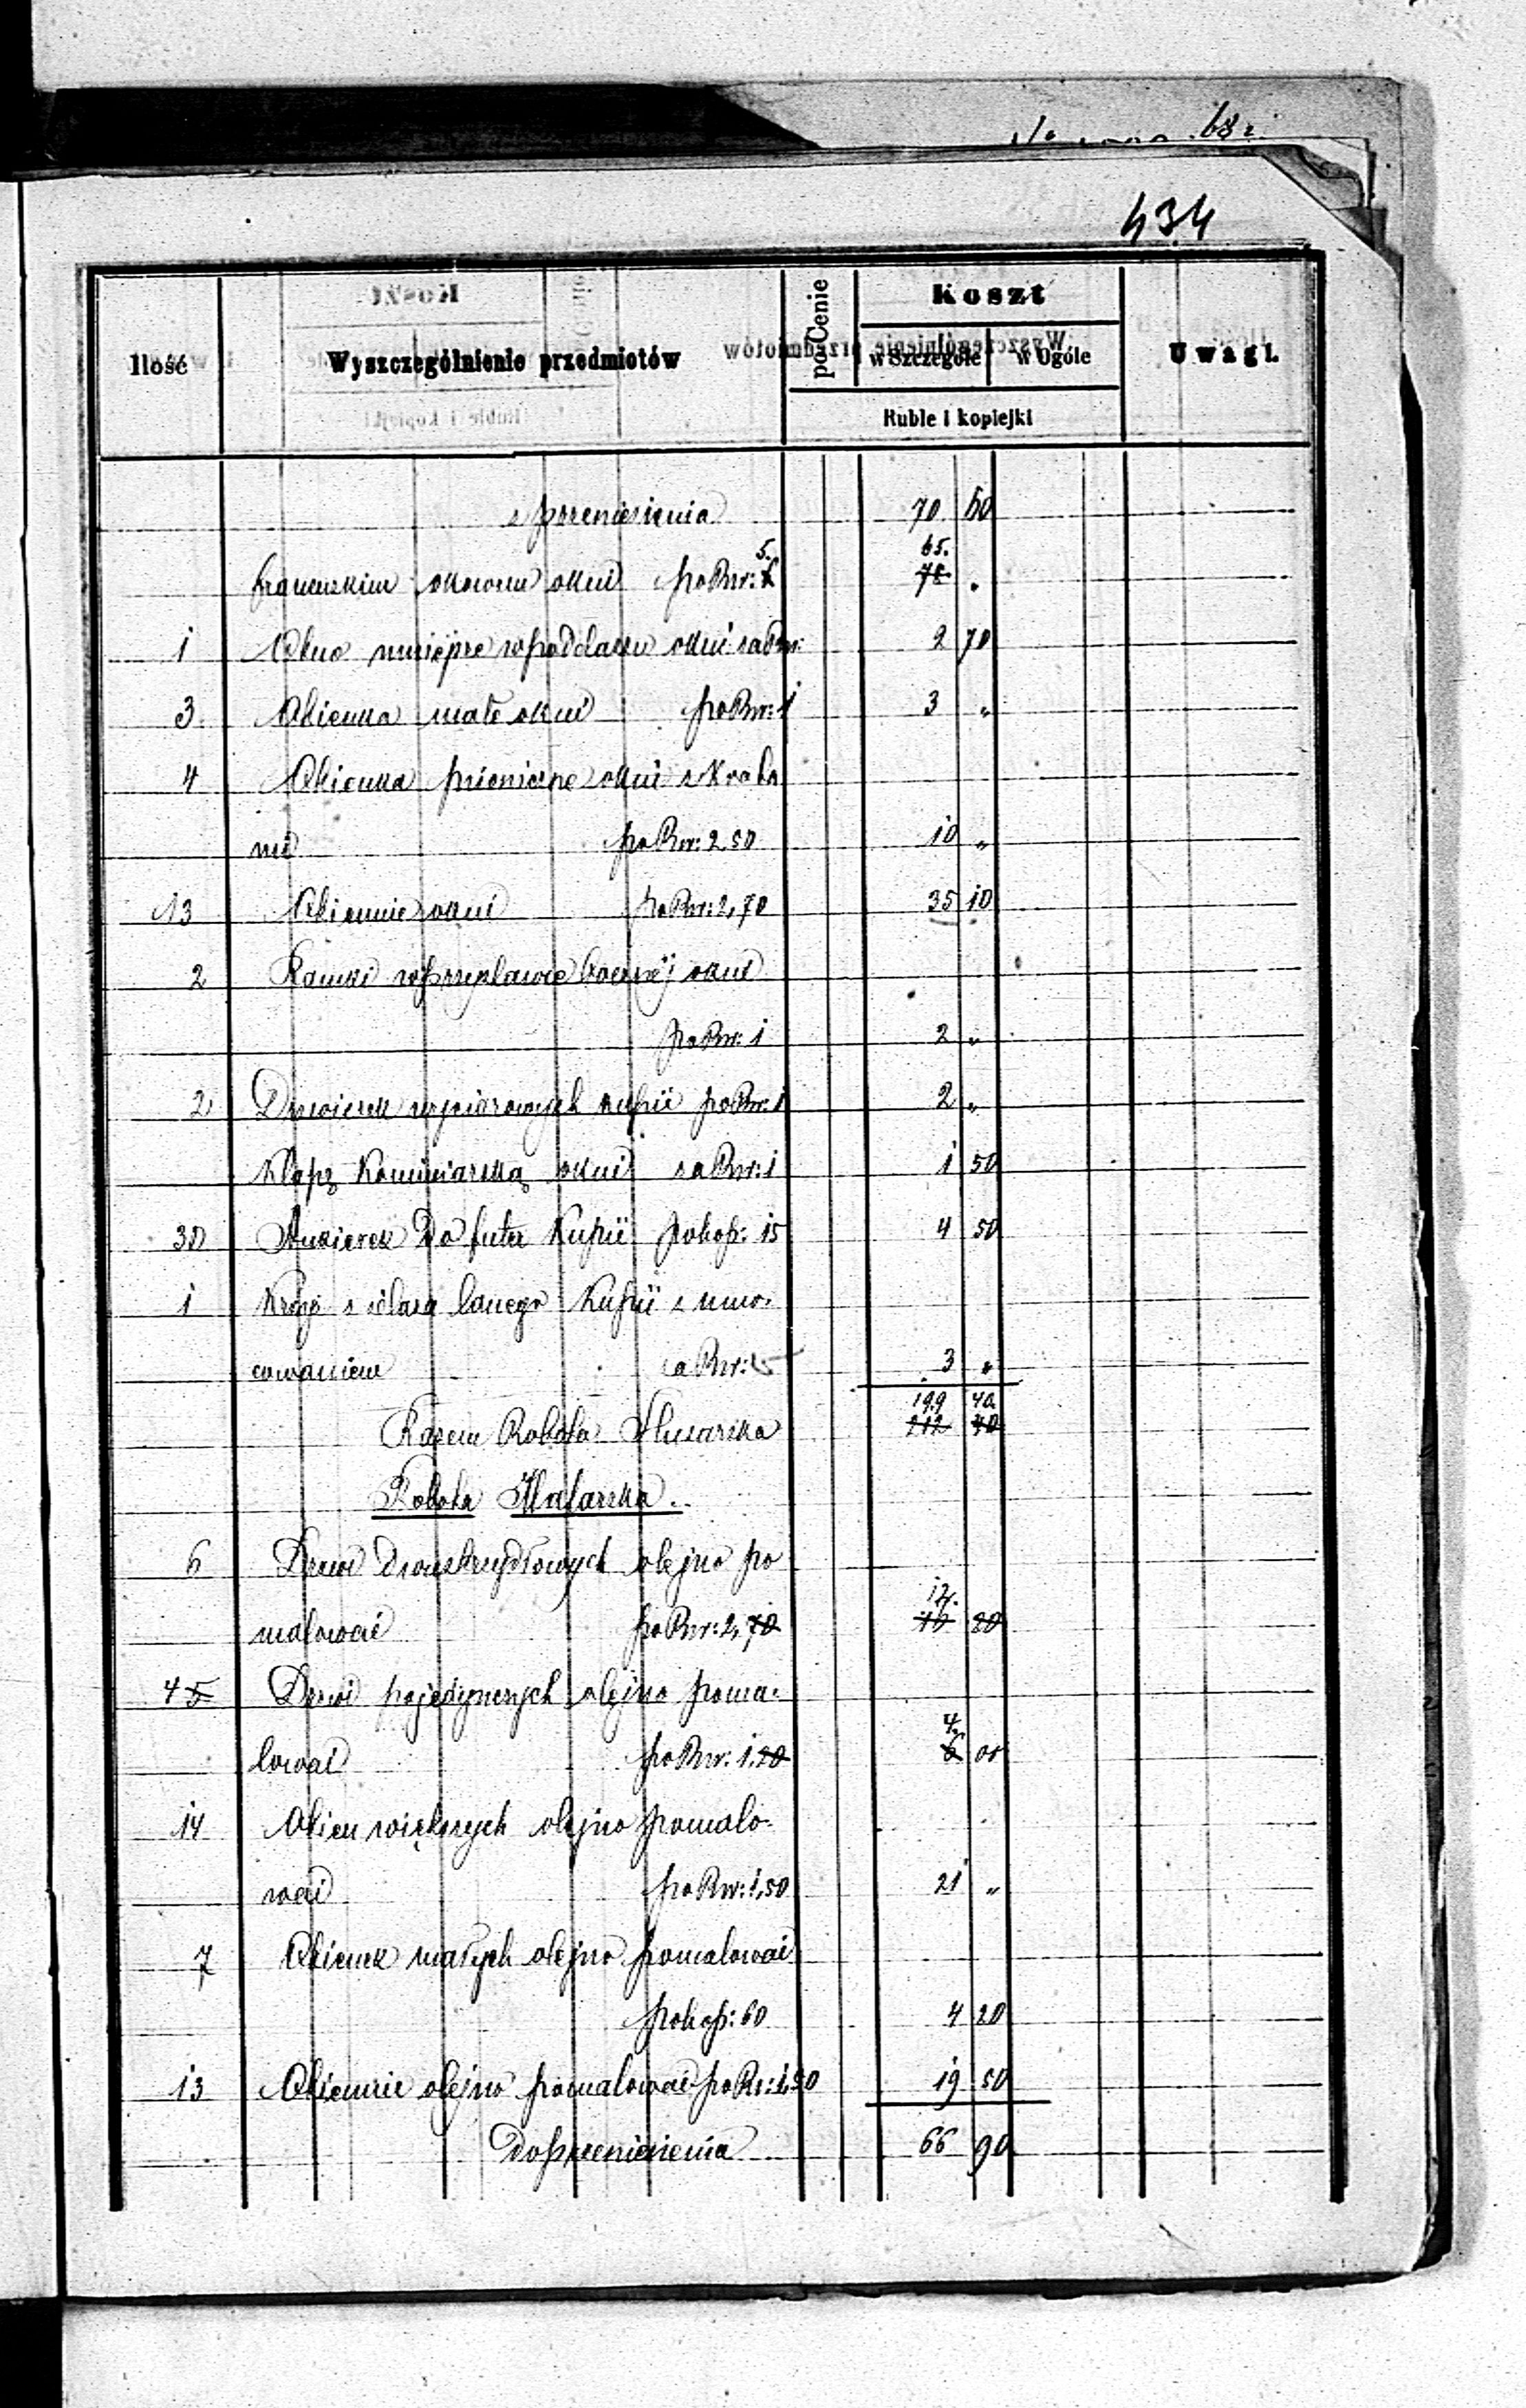 434
Ilość Wyszczególnienie przedmiotów po Cenie Koszt Uwagi.
w Szczególe w Ogóle
Ruble i kopiejki
z przeniesienia 70 60
5. 65.
francuskim okowem okuć po Rsr: 6 78 "
1 Okno mniejsze w poddaszu okuć za Rsr: 2 70
3 Okienka małe okuć po Rsr: 1 3 "
4 Okienka piwniczne okuć z krata
mi po Rsr: 2 50 10 "
13 Okiennic okuć po Rsr: 2,70 35 10
2 Ramki w okuć
po Rsr: 1 2 "
2 Drzwiczek wyciorowych kupić po Rsr: 1 2 "
Klapę Kominiarską okuć za Rsr: 1 1 50
30 do futer Kupić po kop: 15 4 50
1 z żelaza lanego Kupić z umo-
cowaniem za Rsr: 3 "
199 40.
Razem Robota Ślusarska 212 40
Robota Malarska.
6 Drzwi dwuskrzydłowych olejno po
12.
malować po Rsr: 2,70 16 20
4 5 Drzwi pojedynczych olejno poma-
4.
lować po Rsr: 1.20 6 00
14 Okien większych olejno pomalo-
wać po Rsr: 1,50 21 "
7 Okienek małych olejno pomalować
po kop: 60 4 20
13 Okiennic olejno pomalować po Rs: 1,50 19 50
Do przeniesienia 66 90